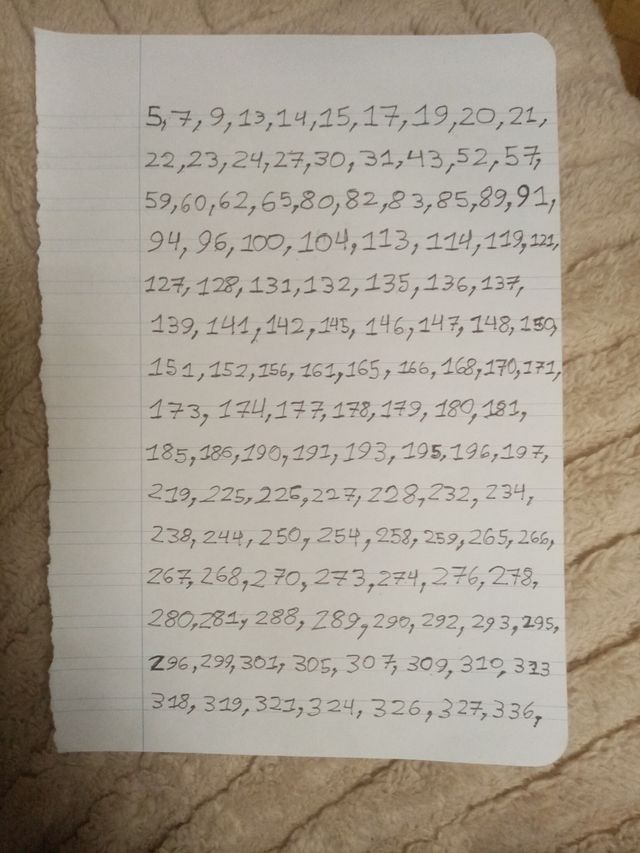 5,7,9,13,14,15,17,19,20,21,
22,23,24,27,30,31,43,52,57,
59,60,62,65,80,82,83,85,89,91,
94,96,100,104,113,114,119,121,
127,128,131,132,135,136,137,
139,141,142,145,146,147,148,150,
151,152,156,161,165,166,168,170,171,
173,174,177,178,179,180,181,
185,186,190,191,193,195,196,197,
219,225,226,227,228,232,234,
238,244,250,254,258,259,265,266,
267,268,270,273,274,276,278,
280,281,288,289,290,292,293,295,
296,299,301,305,307,309,310,313
318,319,321,324,326,327,336,